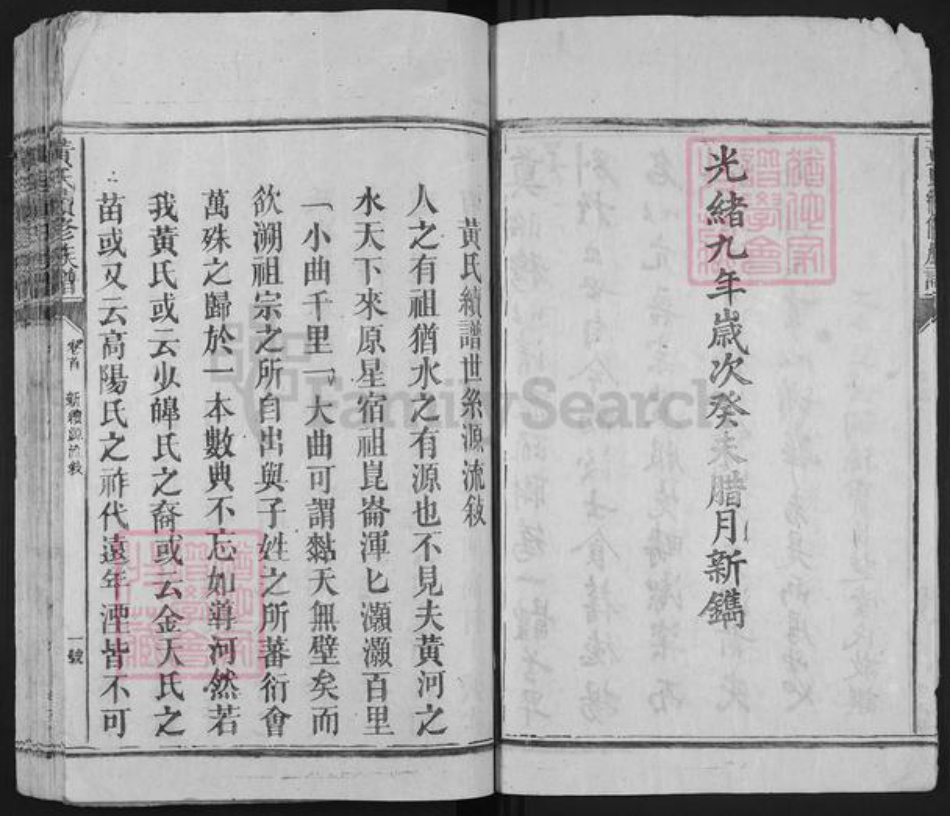 光緒九年歲次癸未腊月新鐫
黃氏續譜世系源流敍
人之有祖猶水之有源也不見夫黃河之
水天下來原星宿祖崑崙渾匕灝灝百里
一小曲千里一大曲可謂黏天無壁矣而
欲溯祖宗之所自出與子姓之所蕃衍會
萬殊之歸於一本數典不忘如導河然若
我黃氏或云少皥氏之裔或云金天氏之
苗或又云高陽氏之祚代遠年湮皆不可
卷首
一號
FamilySearch